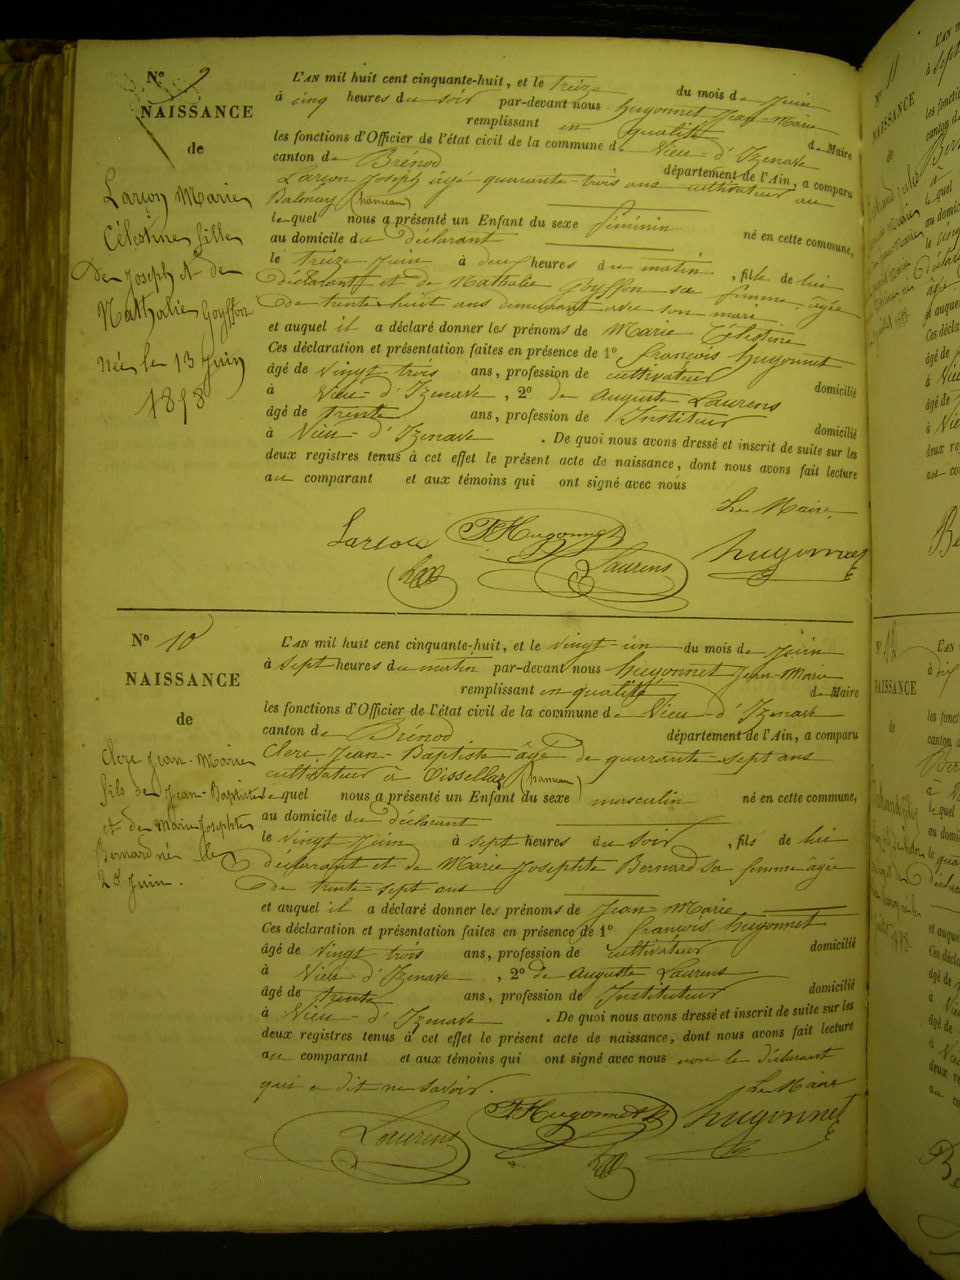 N° 9
NAISSANCE
de
Larçon Marie
Célestine fille
de Joseph et de
Nathalie Goyffon
née le 13 Juin
1858
L'AN mil huit cent cinquante-huit, et le treize du mois de Juin
à cinq heures du soir par-devant nous hugonnet Jean-Marie
remplissant en qualité de Maire
les fonctions d'Officier de l'état civil de la commune de Vieu-d'Izenave
canton de Brénod département de l'Ain, a comparu
Larçon Joseph âgé quarante-trois ans cultivateur au
Balmay (hameau)
lequel nous a présenté un Enfant du sexe féminin né en cette commune,
au domicile du déclarant
le treize Juin à deux heures du matin, fille de lui
déclarant et de Nathalie Goyffon sa femme âgée
de trente huit ans demeurant avec son mari
et auquel il a déclaré donner les prénoms de Marie Célestine
Ces déclaration et présentation faites en présence de 1° françois hugonnet
âgé de vingt-trois ans, profession de cultivateur domicilié
à Vieu-d'Izenave, 2° de Auguste Laurens
âgé de trente ans, profession de Instituteur domicilié
à Vieu-d'Izenave. De quoi nous avons dressé et inscrit de suite sur les
deux registres tenus à cet effet le présent acte de naissance, dont nous avons fait lecture
au comparant et aux témoins qui ont signé avec nous
Le Maire,
Larçon F Hugonnet Laurens hugonnet
N° 10
NAISSANCE
de
Clerc Jean-Marie
fils de Jean-Baptiste
et de Marie Josephte
Bernard né le
20 Juin.
L'AN mil huit cent cinquante-huit, et le vingt-un du mois de Juin
à sept heures du matin par-devant nous hugonnet Jean-Marie
remplissant en qualité de Maire
les fonctions d'Officier de l'état civil de la commune de Vieu-d'Izenave
canton de Brénod département de l'Ain, a comparu
Clerc Jean-Baptiste âgé de quarante-sept ans
cultivateur à (hameau)
lequel nous a présenté un Enfant du sexe masculin né en cette commune,
au domicile du déclarant
le vingt Juin à sept heures du soir, fils de lui
déclarant et de Marie Josephte Bernard sa femme âgée
de trente-sept ans
et auquel il a déclaré donner les prénoms de Jean-Marie
Ces déclaration et présentation faites en présence de 1° françois hugonnet
âgé de vingt-trois ans, profession de cultivateur domicilié
à Vieu-d'Izenave, 2° de Auguste Laurens
âgé de trente ans, profession de Instituteur domicilié
à Vieu-d'Izenave. De quoi nous avons dressé et inscrit de suite sur les
deux registres tenus à cet effet le présent acte de naissance, dont nous avons fait lecture
au comparant et aux témoins qui ont signé avec nous non le déclarant
qui a dit ne savoir. Le Maire
Laurens F Hugonnet hugonnet
N° 11
NAISSANCE
de
N° 12
NAISSANCE
de